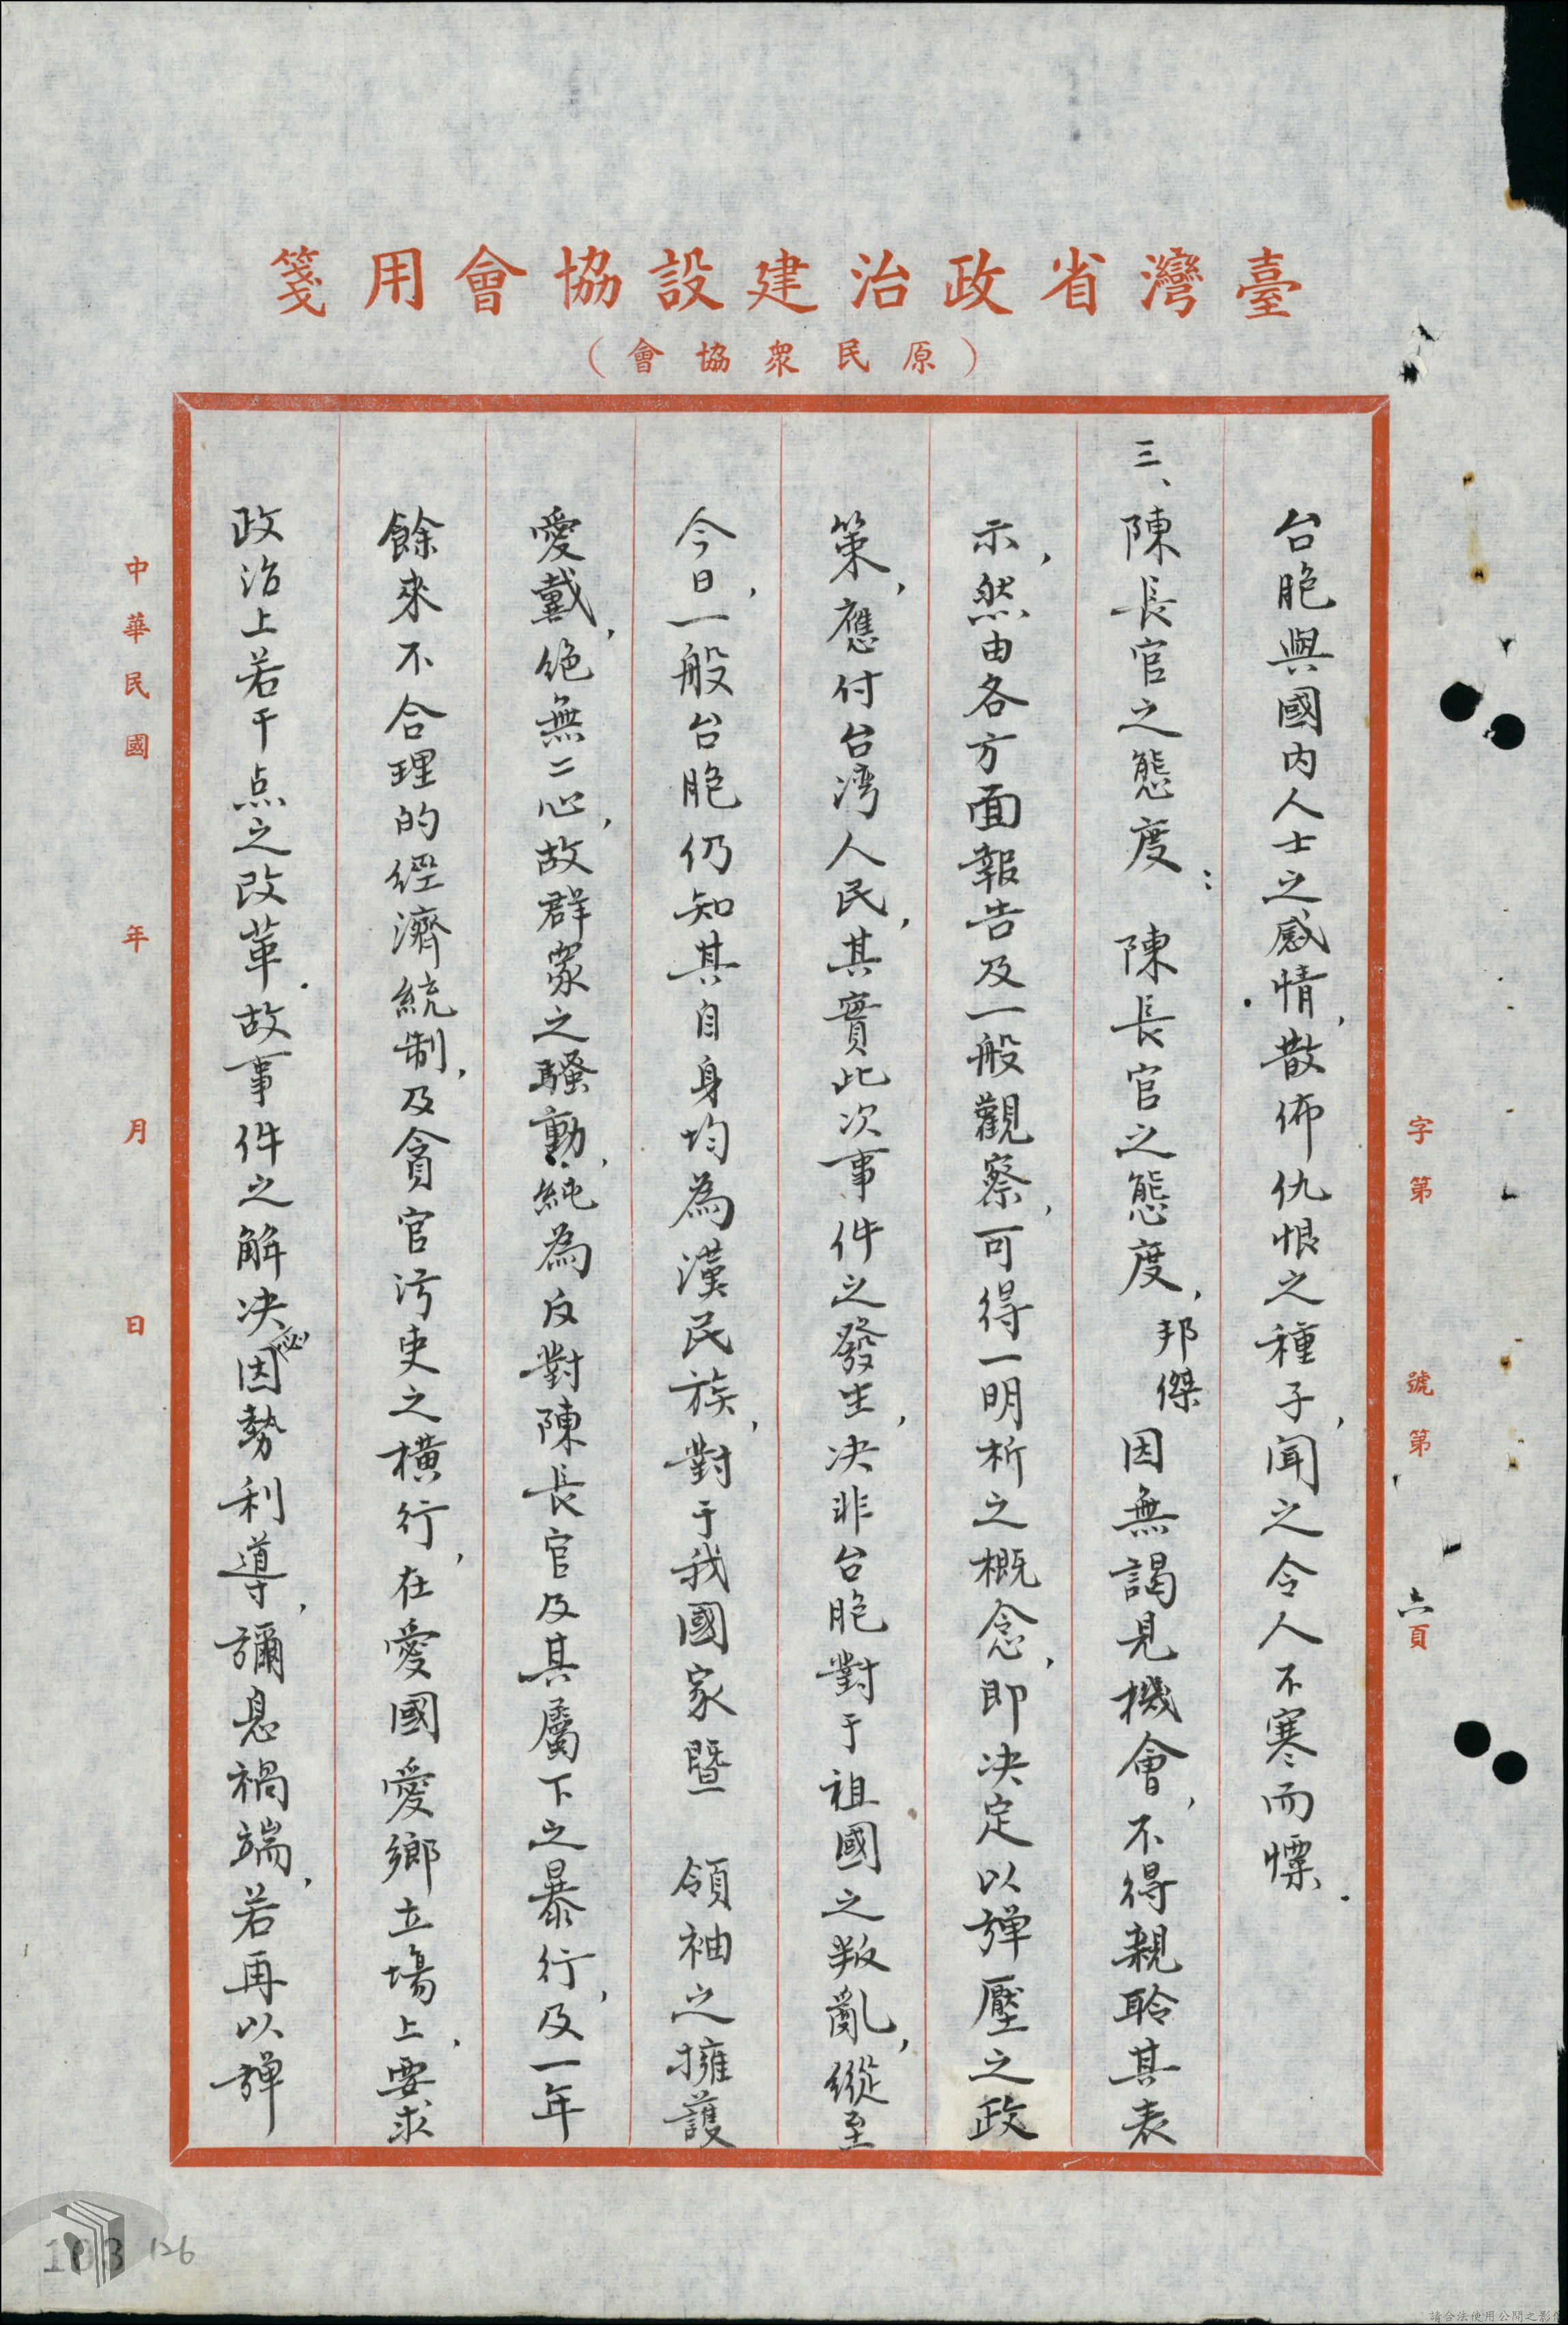 臺灣省政治建設協會用箋
（原民衆協會）
字第　號第六頁
台胞與國內人士之感情，散佈仇恨之種子，聞之令人不寒而慄．
三、陳長官之態度：陳長官之態度，邦傑因無謁見機會，不得親聆其表
示，然由各方面報告及一般觀察，可得一明析之概念，即決定以彈壓之政
策，應付台湾人民，其實此次事件之發生，決非台胞對于祖國之叛亂，縱至
今日，一般台胞仍知其自身均為漢民族，對于我國家暨　領袖之擁護
愛戴，绝無二心，故群眾之騷動，純為反對陳長官及其屬下之暴行，及一年
餘來不合理的經濟統制，及貪官污吏之橫行，在愛國愛鄉立場上，要求
政治上若干点之改革．故事件之解决必因勢利導，彌息禍端，若再以彈
中華民國　年　月　日
103 126
請合法使用公開之影像